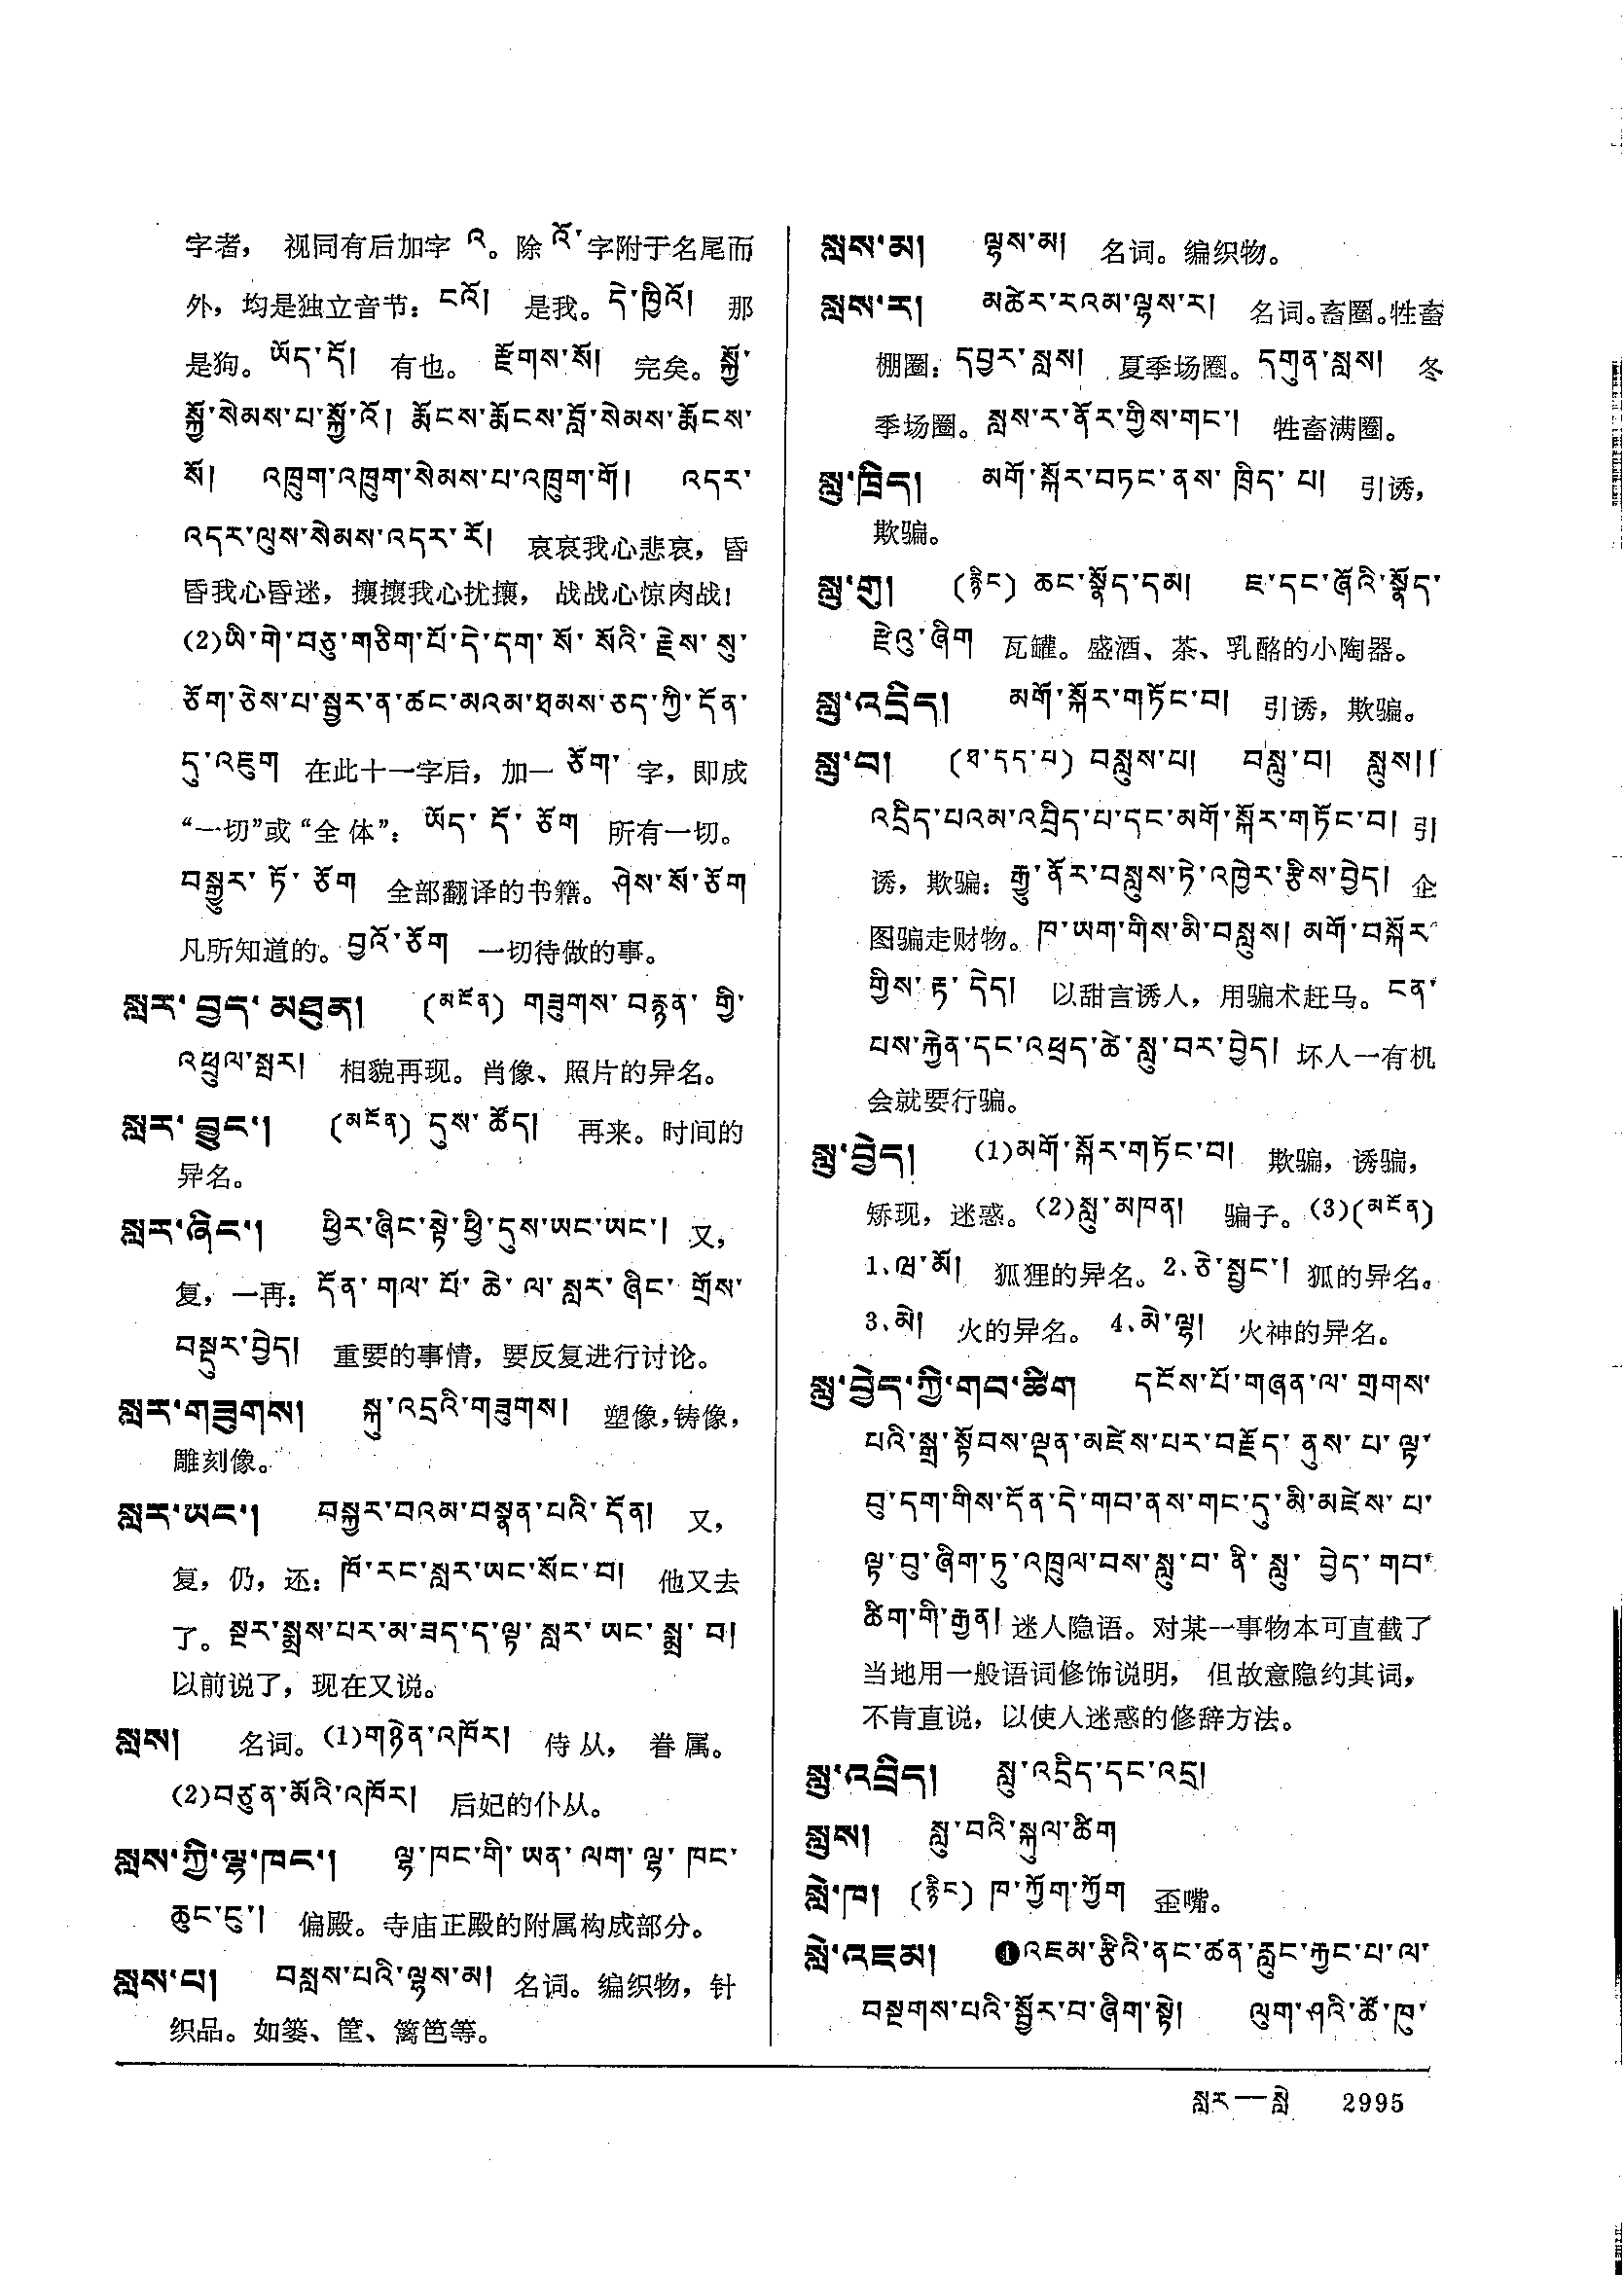 字者， 视同有后加字 འ。除 འོ་字附于名尾而
外，均是独立音节：ངའོ། 是我。དེ་ཁྱིའོ། 那
是狗。ཡོད་དོ། 有也。 རྫོགས་སོ། 完矣。སྐྱོ་
སྐྱོ་སེམས་པ་སྐྱོ་འོ། རྨོངས་རྨོངས་བློ་སེམས་རྨོངས་
སོ། འཁྲུག་འཁྲུག་སེམས་པ་འཁྲུག་གོ། འདར་
འདར་ལུས་སེམས་འདར་རོ། 哀哀我心悲哀，昏
昏我心昏迷，攘攘我心扰攘， 战战心惊肉战！
(2)ཡི་གེ་བཅུ་གཅིག་པོ་དེ་དག་སོ་སོའི་རྗེས་སུ་
ཅོག་ཅེས་པ་སྦྱར་ན་ཚང་མའམ་ཐམས་ཅད་ཀྱི་དོན་
དུ་འཇུག 在此十一字后，加一 ཅོག་ 字，即成
“一切”或“全体”：ཡོད་དོ་ཅོག 所有一切。
བསྒྱུར་ཏོ་ཅོག 全部翻译的书籍。ཤེས་སོ་ཅོག
凡所知道的。བྱའོ་ཅོག 一切待做的事。
སླར་བྱད་མཐུན། (མངོན) གཟུགས་བརྙན་གྱི་
འཕྲུལ་སྤར། 相貌再现。肖像、照片的异名。
སླར་བྱུང་། (མངོན) དུས་ཚོད། 再来。时间的
异名。
སླར་ཞིང་། ཕྱིར་ཞིང་སྟེ་ཕྱི་དུས་ཡང་ཡང་། 又，
复，一再：དོན་གལ་པོ་ཆེ་ལ་སླར་ཞིང་གྲོས་
བསྡུར་བྱེད། 重要的事情，要反复进行讨论。
སླར་གཟུགས། སྐུ་འདྲའི་གཟུགས། 塑像，铸像，
雕刻像。
སླར་ཡང་། བསྐྱར་བའམ་བསྣན་པའི་དོན། 又，
复，仍，还：ཁོ་རང་སླར་ཡང་སོང་བ། 他又去
了。སྔར་སྨྲས་པར་མ་ཟད་ད་ལྟ་སླར་ཡང་སྨྲ་བ།
以前说了，现在又说。
སླས། 名词。(1)གཉེན་འཁོར། 侍从， 眷属。
(2)བཙུན་མོའི་འཁོར། 后妃的仆从。
སླས་ཀྱི་ལྷ་ཁང་། ལྷ་ཁང་གི་ཡན་ལག་ལྷ་ཁང་
ཆུང་ངུ་། 偏殿。寺庙正殿的附属构成部分。
སླས་པ། བསླས་པའི་ལྷས་མ། 名词。编织物，针
织品。如篓、筐、篱笆等。
སླས་མ། ལྷས་མ། 名词。编织物。
སླས་ར། མཚེར་རའམ་ལྷས་ར། 名词。畜圈。牲畜
棚圈：དབྱར་སླས། 夏季场圈。དགུན་སླས། 冬
季场圈。སླས་ར་ནོར་གྱིས་གང་། 牲畜满圈。
སླུ་ཁྲིད། མགོ་སྐོར་བཏང་ནས་ཁྲིད་པ། 引诱，
欺骗。
སླུ་གུ། (རྙིང) ཆང་སྣོད་དམ། ཇ་དང་ཞོའི་སྣོད་
རྫེའུ་ཞིག 瓦罐。盛酒、茶、乳酪的小陶器。
སླུ་འདྲིད། མགོ་སྐོར་གཏོང་བ། 引诱，欺骗。
སླུ་བ། (ཐ་དད་པ) བསླུས་པ། བསླུ་བ། སླུས།།
འདྲིད་པའམ་འབྲིད་པ་དང་མགོ་སྐོར་གཏོང་བ། 引
诱，欺骗：རྒྱུ་ནོར་བསླུས་ཏེ་འཁྱེར་རྩིས་བྱེད། 企
图骗走财物。ཁ་ཡག་གིས་མི་བསླུས། མགོ་བསྐོར་
གྱིས་རྟ་དེད། 以甜言诱人，用骗术赶马。ངན་
པས་རྐྱེན་དང་འཕྲད་ཚེ་སླུ་བར་བྱེད། 坏人一有机
会就要行骗。
སླུ་བྱེད། (1)མགོ་སྐོར་གཏོང་བ། 欺骗，诱骗，
矫现，迷惑。(2)སླུ་མཁན། 骗子。(3)(མངོན)
1.ཝ་མོ། 狐狸的异名。2.ཅེ་སྤྱང་། 狐的异名。
3.མེ། 火的异名。 4.མེ་ལྷ། 火神的异名。
སླུ་བྱེད་ཀྱི་གབ་ཚིག དངོས་པོ་གཞན་ལ་གྲགས་
པའི་སྒྲ་སྟོབས་ལྡན་མཛེས་པར་བརྗོད་ནུས་པ་ལྟ་
བུ་དག་གིས་དོན་དེ་གབ་ནས་གང་དུ་མི་མཛེས་པ་
ལྟ་བུ་ཞིག་ཏུ་འཁྲུལ་བས་སླུ་བ་ནི་སླུ་བྱེད་གབ་
ཚིག་གི་རྒྱན། 迷人隐语。对某一事物本可直截了
当地用一般语词修饰说明， 但故意隐约其词，
不肯直说，以使人迷惑的修辞方法。
སླུ་འབྲིད། སླུ་འདྲིད་དང་འདྲ།
སླུས། སླུ་བའི་སྐུལ་ཚིག
སླེ་ཁ། (རྙིང) ཁ་ཀྱོག་ཀྱོག 歪嘴。
སླེ་འཇམ། ❶འཇམ་རྩིའི་ནང་ཚན་རླུང་རྐྱང་པ་ལ་
བསྔགས་པའི་སྦྱོར་བ་ཞིག་སྟེ། ལུག་ཤའི་ཚོ་ཁུ་
སླར—སླེ 2995